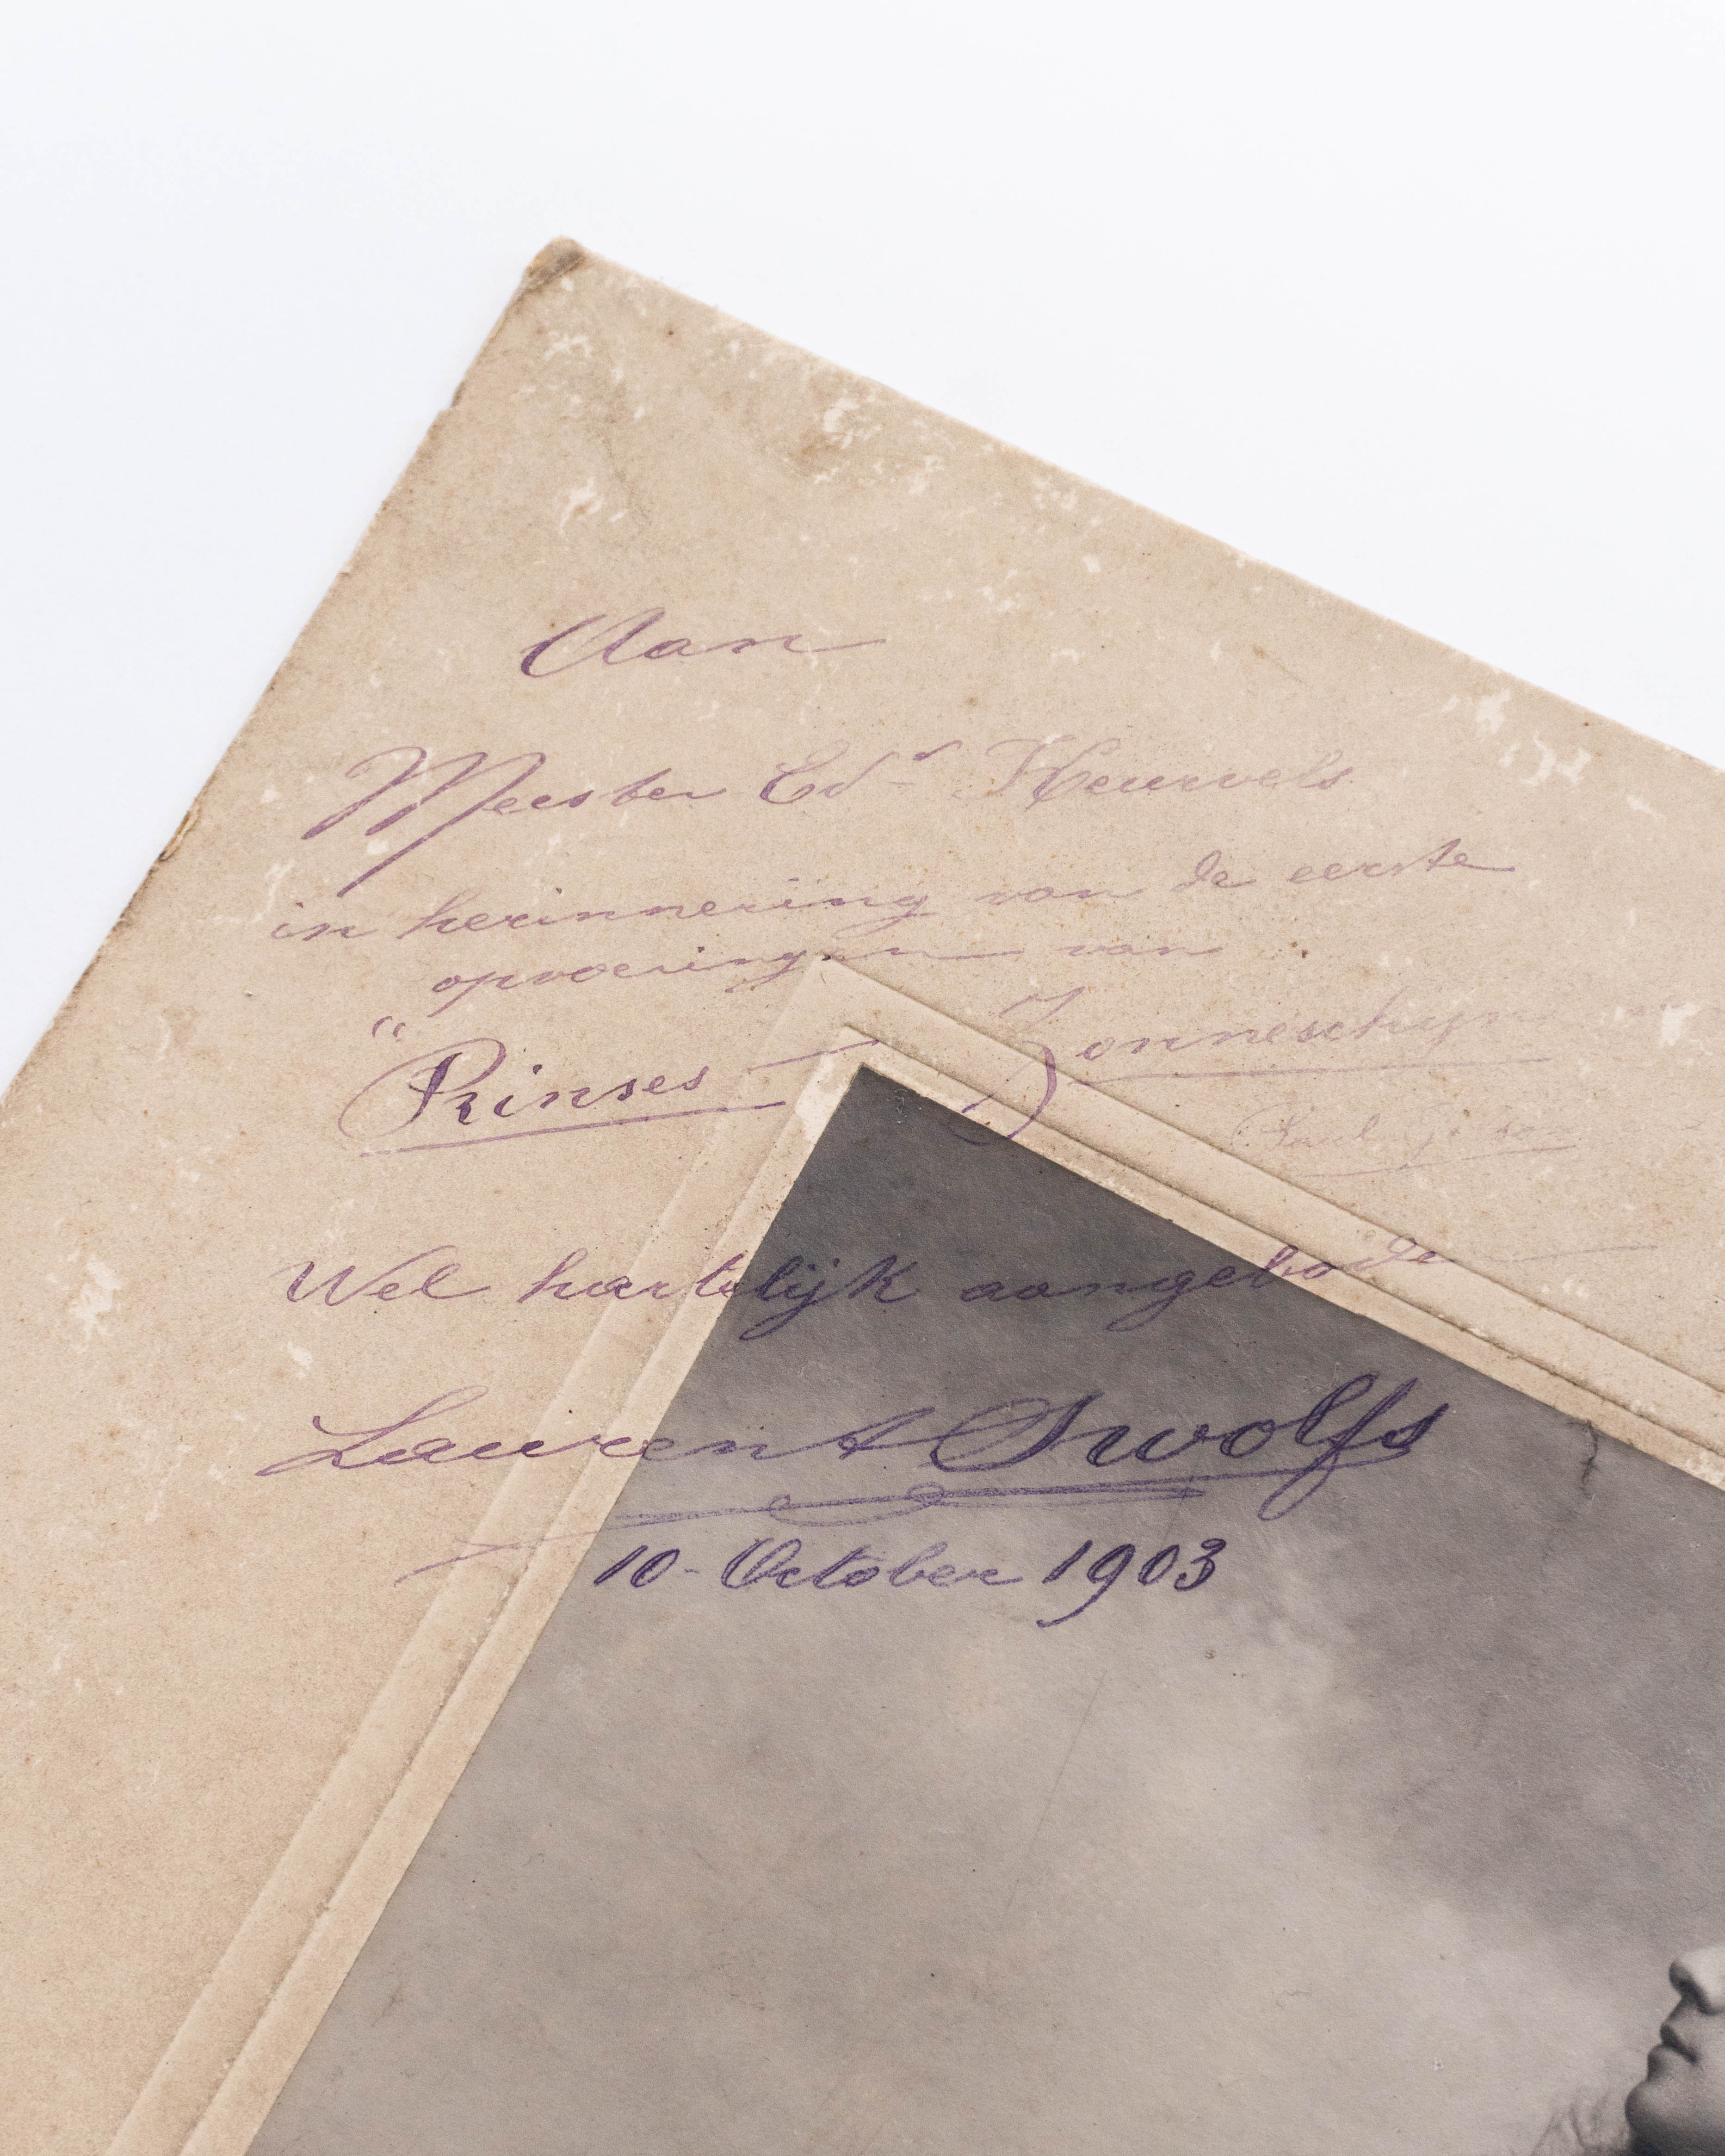 Aan
Meester Ed^d Keurvels
in herinnering van de eerste
opvoeringen van
"Prinses Zonneschijn"
Paul Gilson
Wel hartelijk aangebode
Laurent Swolfs
10 - October 1903